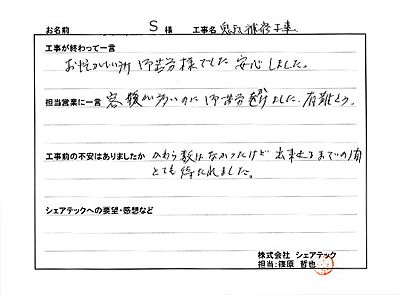 お名前 S 様 工事名 鬼瓦補修工事
工事が終わって一言
お忙しい所 御苦労様でした 安心しました。
担当営業に一言 容積が多いのに 御苦労掛けました。有難とう。
工事前の不安はありましたか かわら数はなかったけど 出来るまでの間
とても待たれました。
シェアテックへの要望・感想など
株式会社 シェアテック
担当:篠原 哲也